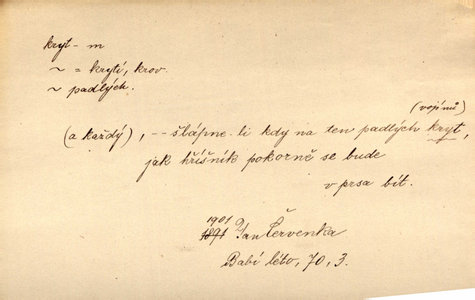 kryt – m
~ = krytí, krov.
~ padlých.
(vojínů)
(a každý), -- šlápne-li kdy na ten padlých kryt,
jak hříšník pokorně se bude
v prsa bít.
1901
1891 Jan Červenka
Babí léto, 70, 3.